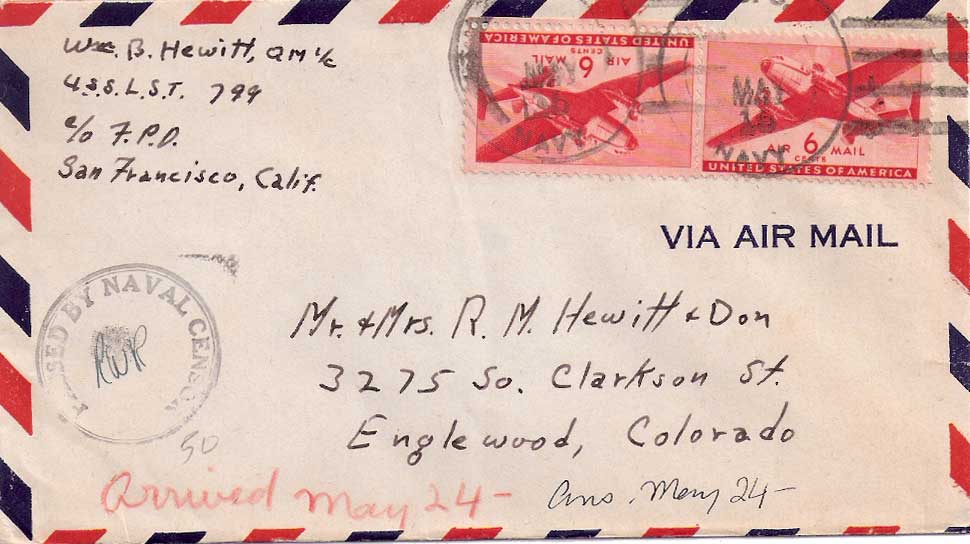 Wm. B. Hewitt, QM 1/c
U.S.S. L.S.T. 799
c/o F.P.O.
San Francisco, Calif.
UNITED STATES OF AMERICA
6 CENTS
AIR MAIL
MAY
NAVY
MAY
18
NAVY
AIR 6 MAIL
CENTS
UNITED STATES OF AMERICA
VIA AIR MAIL
PASSED BY NAVAL CENSOR
RWR
Mr. & Mrs. R. M. Hewitt & Don
3275 So. Clarkson St.
Englewood, Colorado
50
Arrived May 24-
Ans. May 24-